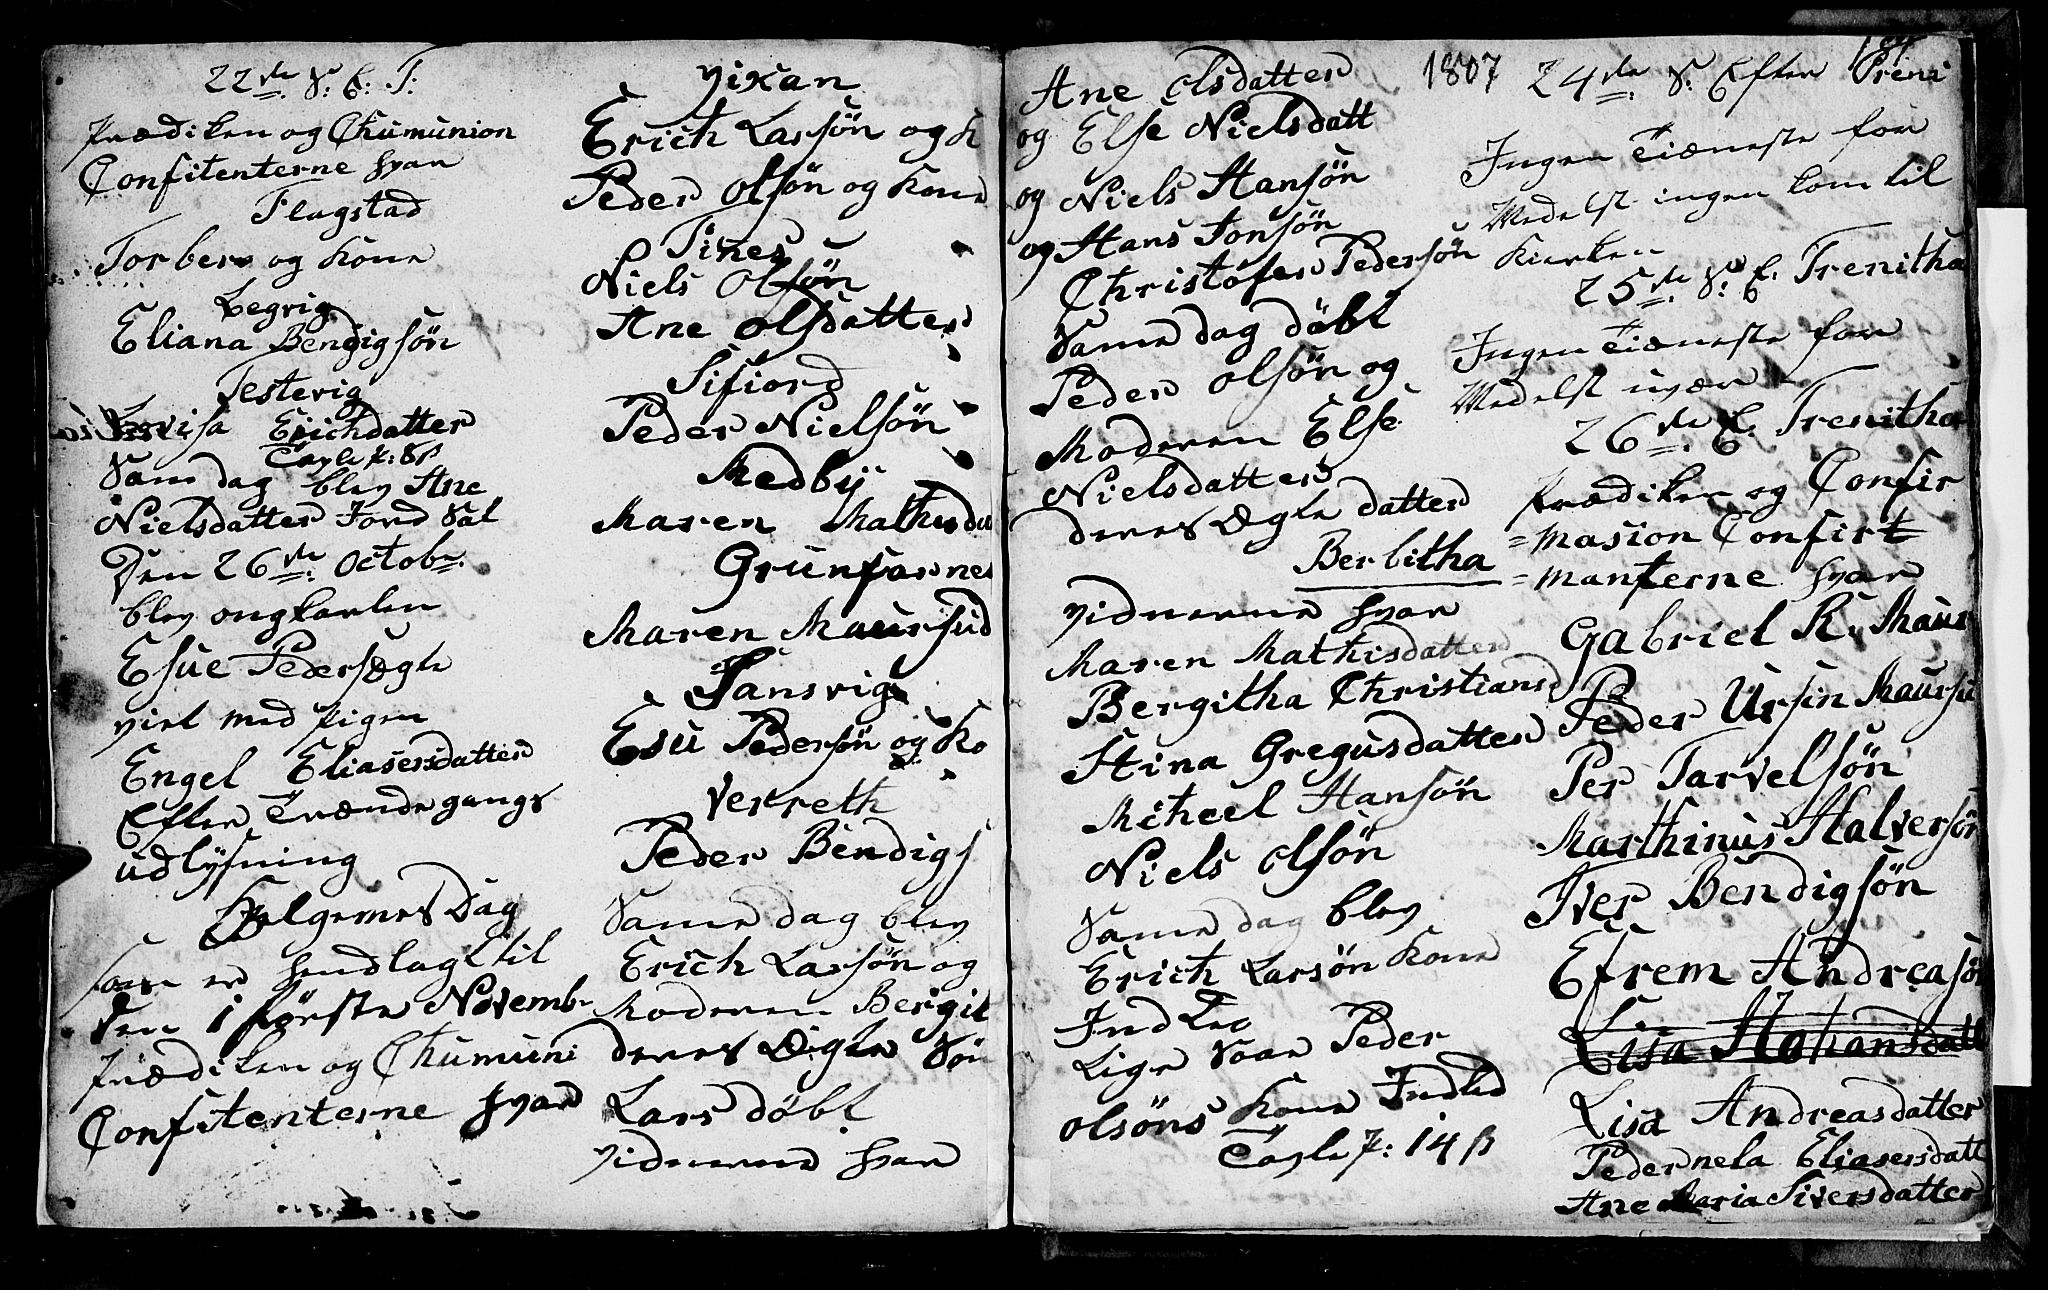 22de S: E: T:
Prædiken og Chumunion
Confitenterne hvar
Flagstad
Torber og Kone
Legvig
Eliana Bendigsön
Testevig
Lovisa Erichdatter
Tavle p: 8 β
Sam dag blev Ane
Nielsdatter Jord Sat
Den 26de Octobr.
blev ongkarlen
Esue Pedersøgle
viet med Pigen
Engel Eliasersdatter
Efter Trænde gangs
udlysning
Helgemes Dag
som er henlagt til
den 1 förste Novemb
Prædiken og Chumuni
Confitenterne hvar
Vixan
Erich Larsön og K
Peder Olsön og Kone
Tines
Niels Olsön
Ane Olsdatter
Sifiord
Peder Nielsön
Medby
Maren Mathisda
Grunfarnes
Maren Maursud
Hansvig
Esu Pedersön og Ko
Verreth
Peder Bendigs
Same dag blev
Erich Larsön og
Moderen Bergit
deres Ægte Sön
Lars döbt
Vidnerne hvar
Ane Olsdatter
og Else Nielsdatt
og Niels Hansön
og Hans Jonsön
Christofer Pedersön
Same dag döbt
Peder Olsön og
Moderen Else
Nielsdatter
deres Ægte datter
Berbitha
Vidnerne hvar
Maren Mathisdatter
Bergitha Christiansd
Stina Gregusdatter
Micheel Hansön
Niels Olsön
Same dag blev
Erich Larsön Kone
Indled
Lige Saae Peder
Olsöns Kone Indled
Tavle p: 14 β
1807
184
24de S: Efter Treni
Ingen Tiæneste for
Medelst ingen kom til
Kierken
25de S: E: Trenitha
Ingen Tiæneste for
Medelst uvær
26de E: Trenitha
Prædiken og Confir
=masion Confirt
=manterne hvar
Gabriel K. Maur
Peder Ursin Maursu
Per Tarvelsön
Marthinus Halversön
Iver Bendigsön
Efrem Andreasön
Lisa Hohansdatt
Lisa Andreasdatter
Pedernela Eliasersdatt
Ane Maria Siversdatter